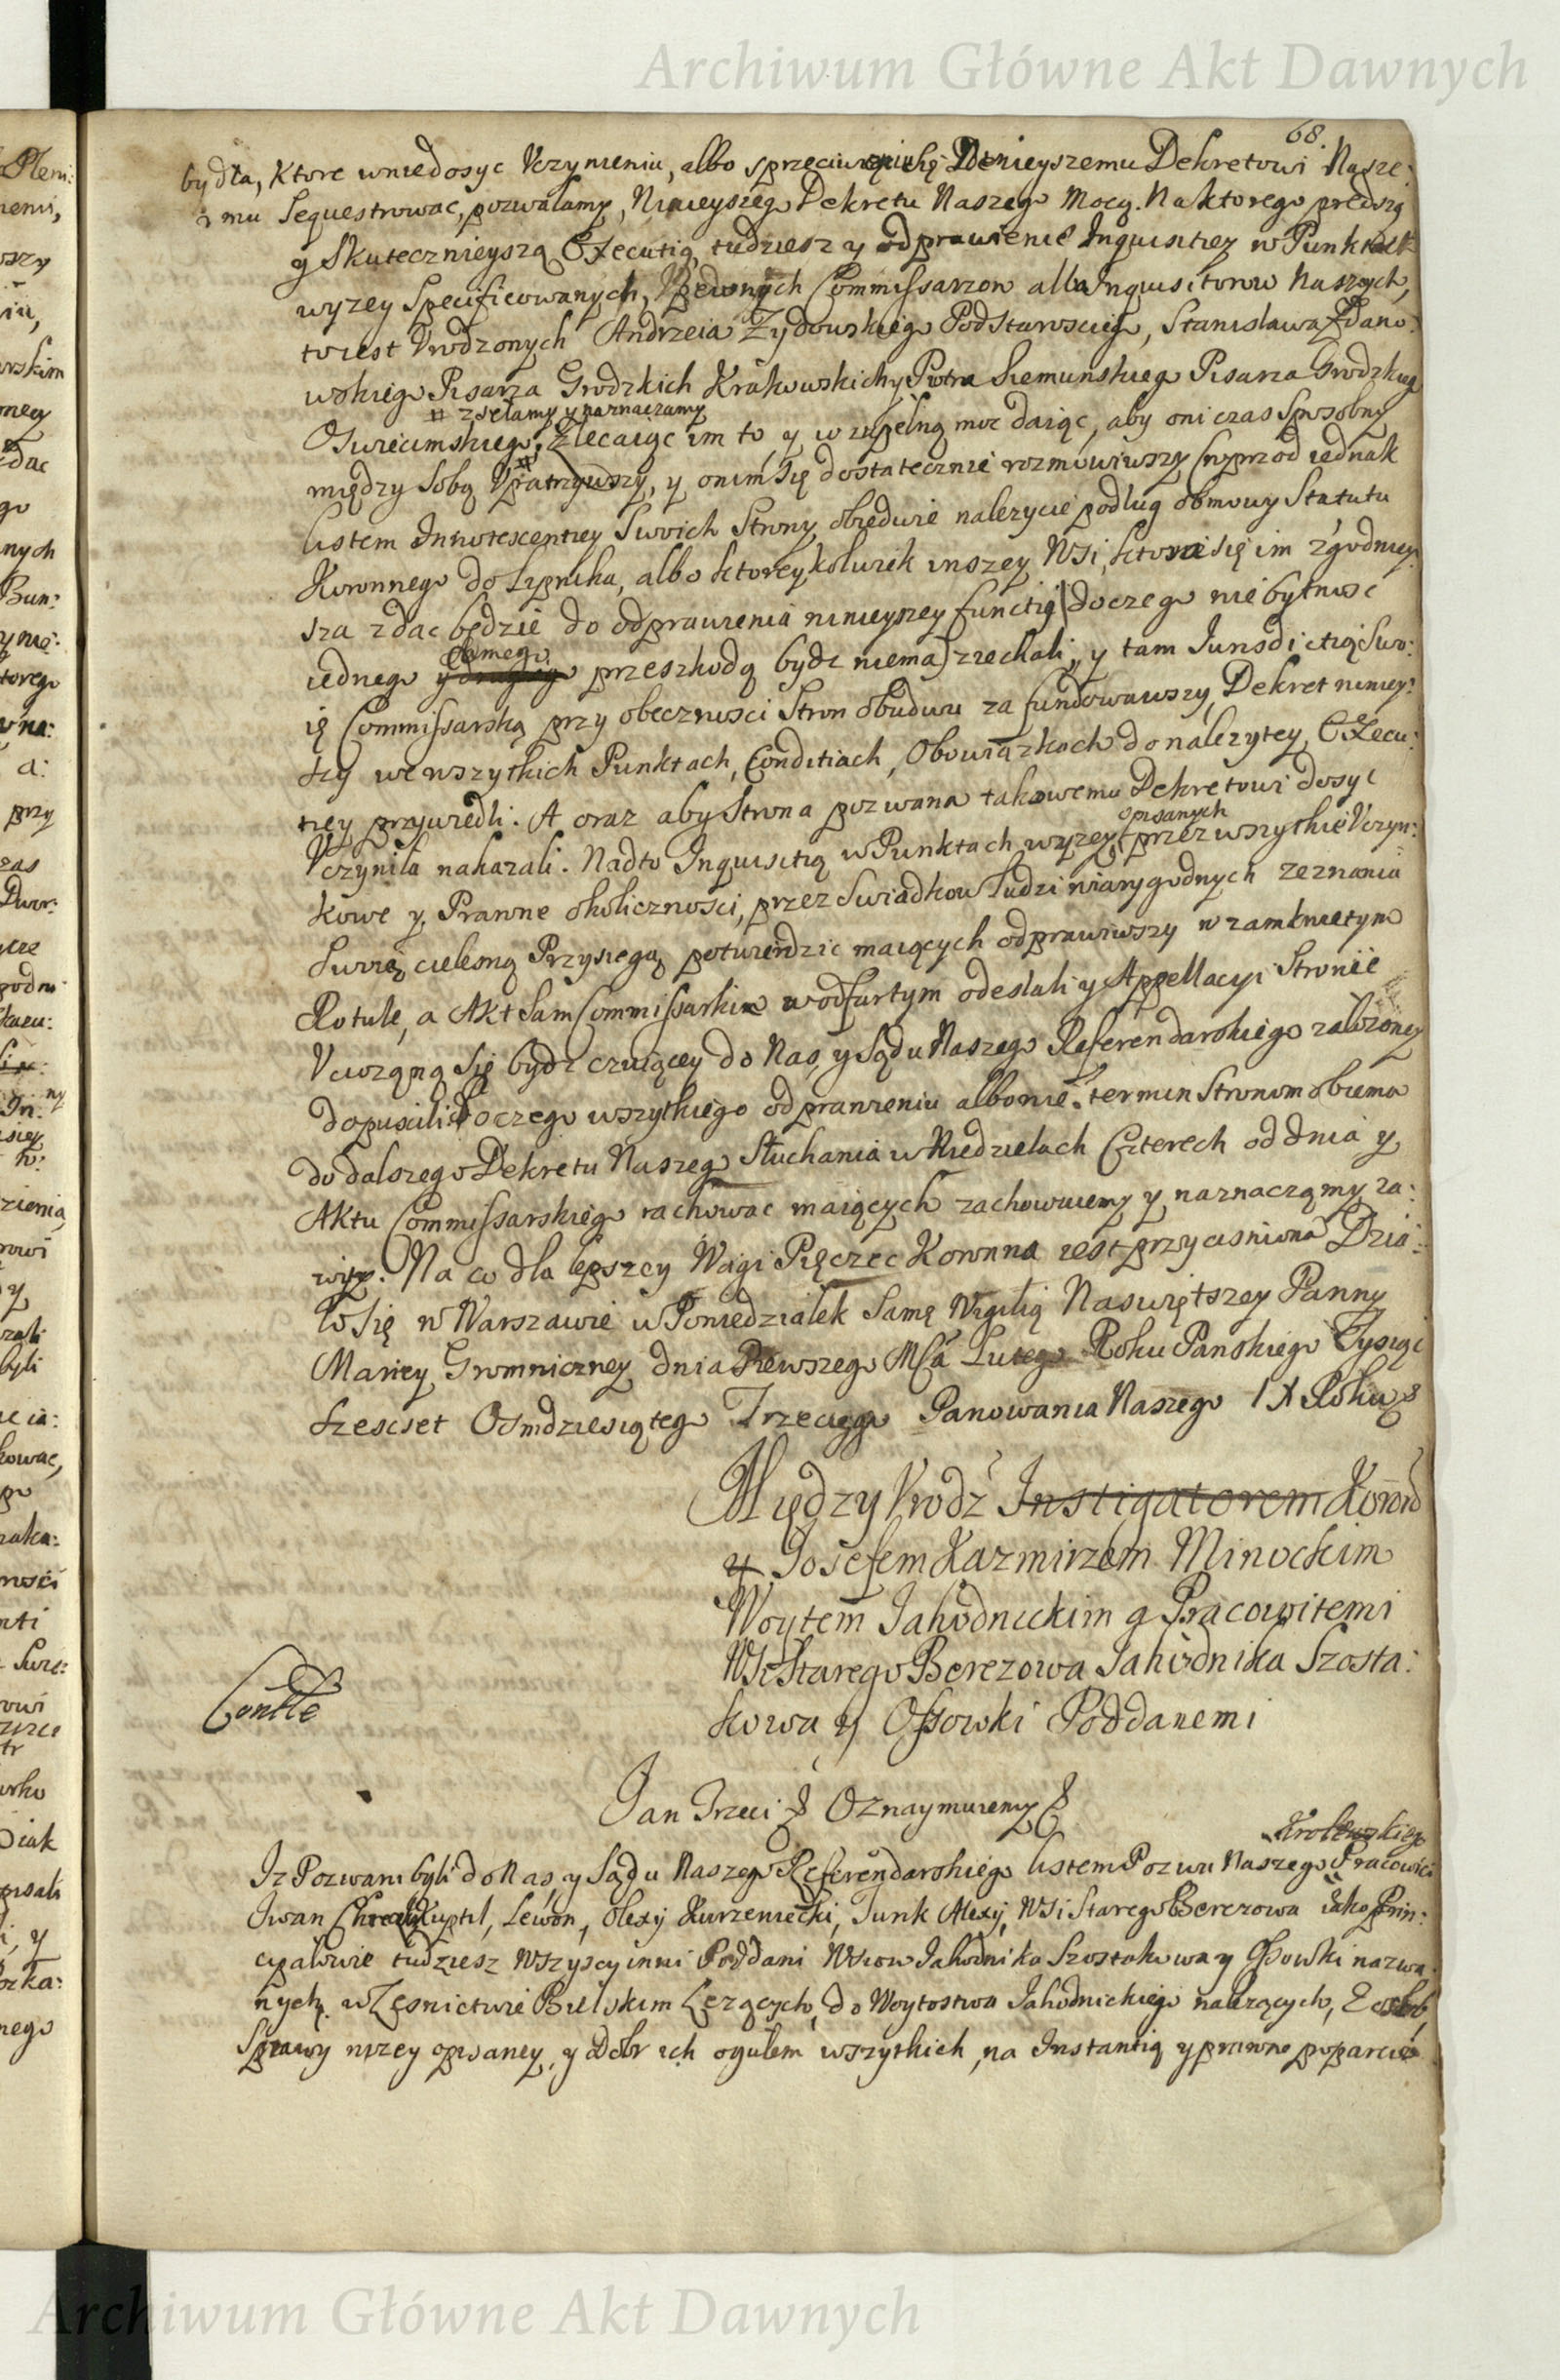 Archiwum Główne Akt Dawnych
68.
bydła, Ktore wniedosyc Vczynieniu, albo sprzeciwieniu się Ninieyszemu Dekretowi Nasze:
mu Sequestrowac, pozwalamy, Ninieyszego Dekretu Naszego Mocą. Na ktorego prędszą
y Skutecznieyszą Executią, tudziesz y odprawienie Inquisitiey w Punktach
wyzey Specificowanych, Vpewnych Commissarzow albo Inquisitorow Naszych,
to iest Vrodzonych Andrzeia Zydowskiego PodStarosciego, Stanisława Zdano:
wskiego Pisarza Grodzkich Krakowskich y Piotra Siemunskiego Pisarza Grodzkiego
# zsełamy y naznaczamy
Oswiecimskiego, Zlecaiąc im to, y w zupełną moc daiąc, aby oni czas Sposobny
między Sobą Vpatrzywszy, y onim się dostatecznie rozmowiwszy (wprzod iednak
listem Innotescentiey Swoich Strony obiedwie nalezycie podług obmowy Statutu
Koronnego do Lipnika, albo ktoreykolwiek inszey Wsi, ktora się im zgodniey:
sza zdac będzie do odprawienia ninieyszey functiy) do czego niebytnosc
iednego samego przeszkodą bydz niema) ziechali, y tam Iurisdictią Swo:
ię Commissarską przy obecznosci Stron obudwu zafundowawszy, Dekret niniey:
szy we wszytkich Punktach, Conditiach, Obowiązkach do nalezytey Execu:
tiey przywiedli. A oraz aby Strona pozwana takowemu Dekretowi dosyc
Vczyniła nakazali. Nadto Inquisitią w Punktach wyzey opisanych przez wszytkie Vczyn:
kowe y Prawne okolicznosci, przez Swiadkow ludzi wiarygodnych zeznania
Swoię cielesną Przysięgą potwierdzic maiących odprawiwszy w zamknietym
Rotule, a Akt Sam Commissarski w odfurtym odesłali y Appellacyi Stronie
Vciązoną się bydz czuiącey do Nas, y Sądu Naszego Referendarskiego załozoney
dopuscili. Po czego wszytkiego odprawieniu albo nie, termin Stronom obiema
do dalszego Dekretu Naszego Słuchania w Niedzielach Czterech od dnia y
Aktu Commissarskiego rachowac maiących zachowuiemy y naznaczamy za:
wity. Na co dla lepszey Wagi Pięczec Koronna iest przycisniona Dzia:
ło się w Warszawie w Poniedziałek Samę Wigilią Naswiętszey Panny
Mariey Gromniczney dnia Pierwszego Msa Lutego Roku Panskiego Tysiąc
szescset Osmdziesiątego Trzeciego Panowania Naszego IX Roku
Między Vrodz Instigatorem Koron
y Josefem Kazmirzem Minockim
Woytem Jahodnickim a Pracowitemi
Wsi Starego Berezowa Jahodnika Szosta:
kowa y Ossowki Poddanemi
Contle
Jan Trzeci Oznaymuiemy
Krolewskiego
Iz Pozwani byli do Nas, y Sądu Naszego Referendarskiego listem Pozwu Naszego Pracowici
Iwan Kuptel, Lewon, Olexy Kurzeniecki, Tunk Alexy, Wsi Starego Berezowa iako Prin:
cypałowie tudziesz Wszyscy inni Poddani Wsiow Jahodnika Szostakowa y Ossowki nazwa:
nych, w Lesnictwie Bielskim Lezących, do Woytostwa Jahodnickiego nalezących, Z osob,
Sprawy nizey opisaney, y Dobr ich ogułem wszytkich, na Instantią y prawne poparcie
Archiwum Główne Akt Dawnych